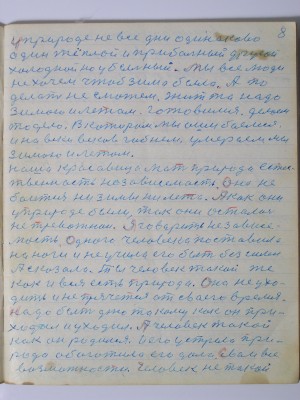 8
у природе не все дни одинаково
один тёплой и прибыльный другой
холодной но убыльный. Мы все люди
не хочем чтоб зима была. А по
делать не сможем, жить то надо
зимою и летом, готовился, делом
тодело. В котором мы ошибаемся
и на веки веков гибнем, умераем на
зимою и летом.
наша красавица мать природа есте
твеность независимость. Она не
боится ни зимы ни лета. А как они
у природе были, так они остались
не тревожном. Я говорить независи-
мость одного человека поставила
на ноги и научила его быть без силы
А сказала. Ты человек такой же
как и вся есть природа. Она не ухо-
дить и не прячется от своего время.
надо быть ей такому как он при-
ходил и уходил. А человек такой
как он родился. и его устрела при-
рода обоготила его дала свои все
возможности. Человек не такой